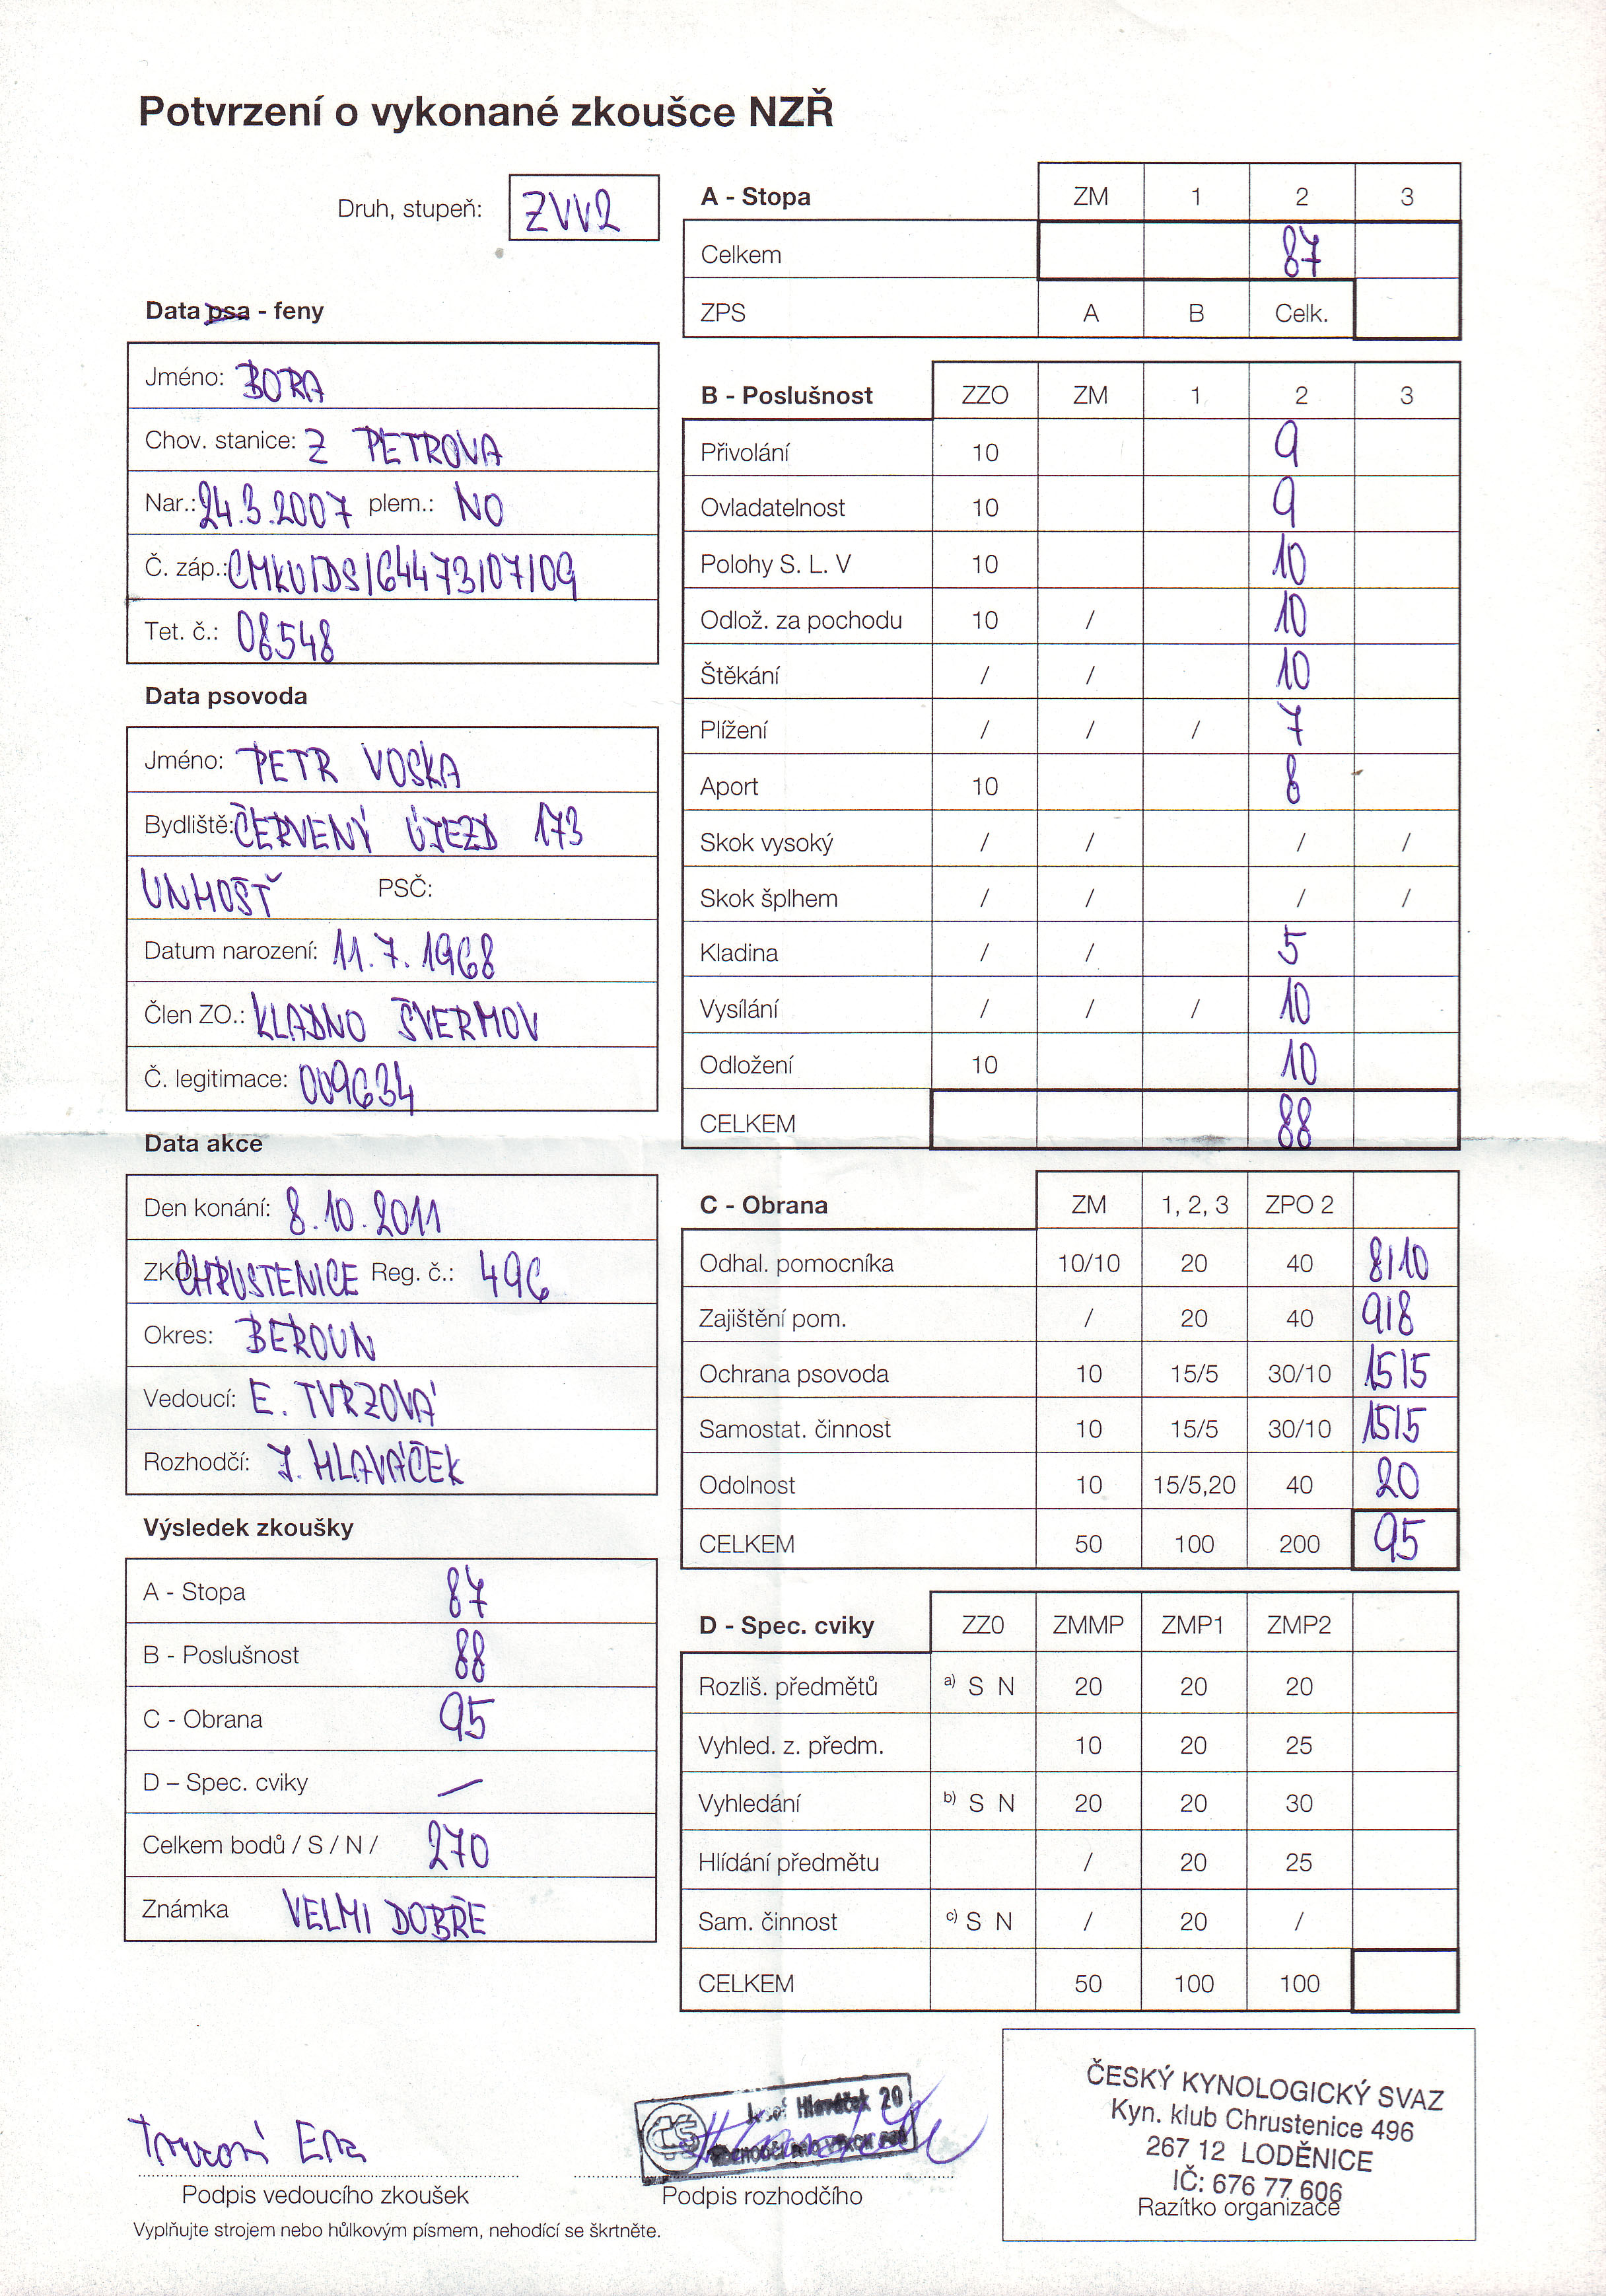 Potvrzení o vykonané zkoušce NZŘ
Druh, stupeň: ZVV2
Data psa - feny
Jméno: BORA
Chov. stanice: Z PETROVA
Nar.: 24.3.2007 plem.: NO
Č. záp.: CMKU/DS/64473/07/09
Tet. č.: 08548
Data psovoda
Jméno: PETR VOSKA
Bydliště: ČERVENÝ ÚJEZD 173
UNHOŠŤ PSČ:
Datum narození: 11.7.1968
Člen ZO.: KLADNO ŠVERMOV
Č. legitimace: 009634
Data akce
Den konání: 8.10.2011
ZKO CHRUSTENICE Reg. č.: 496
Okres: BEROUN
Vedoucí: E. TVRZOVÁ
Rozhodčí: J. HLAVÁČEK
Výsledek zkoušky
A - Stopa 87
B - Poslušnost 88
C - Obrana 95
D – Spec. cviky —
Celkem bodů / S / N / 270
Známka VELMI DOBŘE
A - Stopa ZM 1 2 3
Celkem 87
ZPS A B Celk.
B - Poslušnost ZZO ZM 1 2 3
Přivolání 10 9
Ovladatelnost 10 9
Polohy S. L. V 10 10
Odlož. za pochodu 10 / 10
Štěkání / / 10
Plížení / / / 7
Aport 10 8
Skok vysoký / / / /
Skok šplhem / / / /
Kladina / / 5
Vysílání / / / 10
Odložení 10 10
CELKEM 88
C - Obrana ZM 1, 2, 3 ZPO 2
Odhal. pomocníka 10/10 20 40 8/10
Zajištění pom. / 20 40 9/8
Ochrana psovoda 10 15/5 30/10 15/5
Samostat. činnost 10 15/5 30/10 15/5
Odolnost 10 15/5,20 40 20
CELKEM 50 100 200 95
D - Spec. cviky ZZ0 ZMMP ZMP1 ZMP2
Rozliš. předmětů a) S N 20 20 20
Vyhled. z. předm. 10 20 25
Vyhledání b) S N 20 20 30
Hlídání předmětu / 20 25
Sam. činnost c) S N / 20 /
CELKEM 50 100 100
Podpis vedoucího zkoušek
Josef Hlaváček 20
Podpis rozhodčího
ČESKÝ KYNOLOGICKÝ SVAZ
Kyn. klub Chrustenice 496
267 12 LODĚNICE
IČ: 676 77 606
Razítko organizace
Vyplňujte strojem nebo hůlkovým písmem, nehodící se škrtněte.